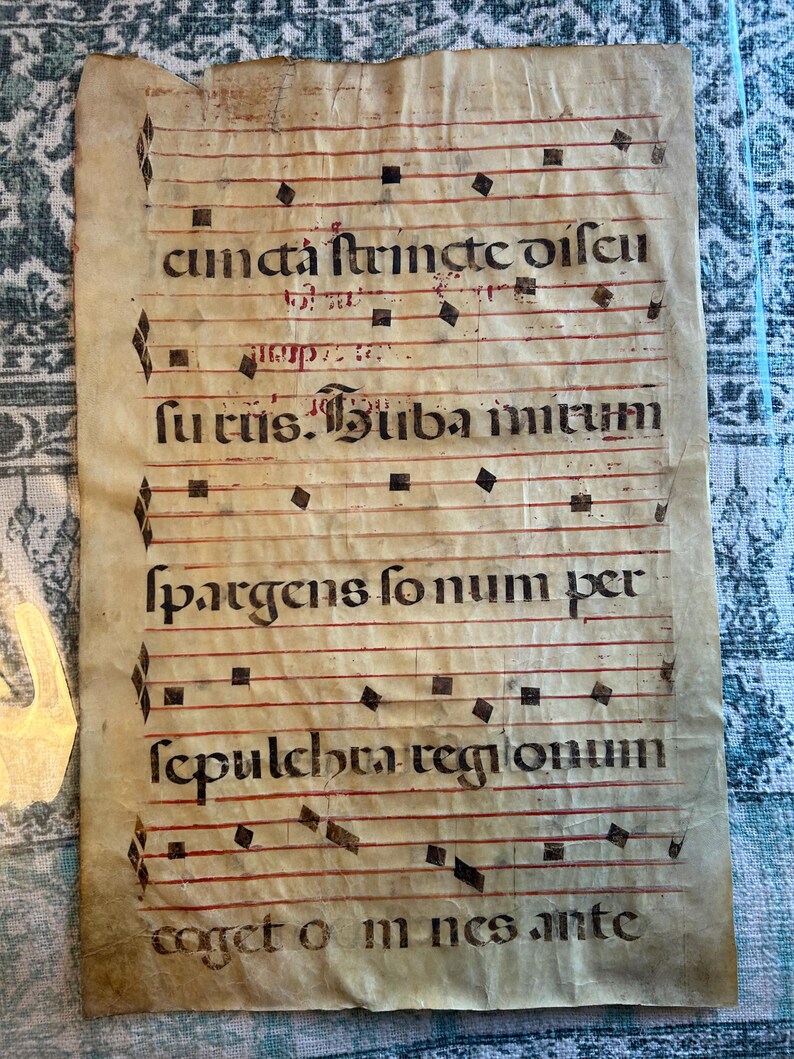 cuncta stricte discu
surus. Tuba mirum
spargens sonum per
sepulchra regionum
coget omnes ante